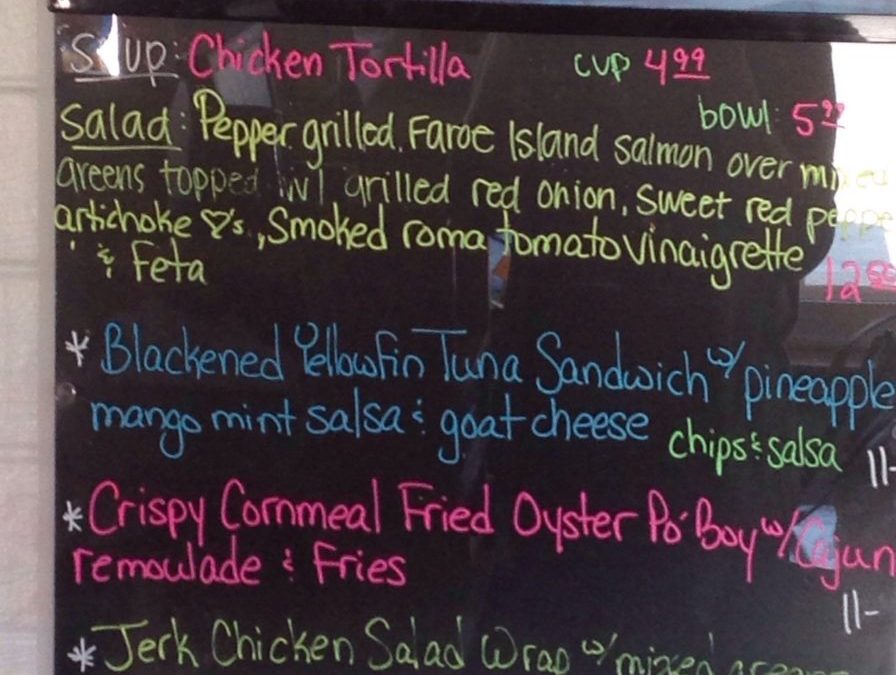 Soup: Chicken Tortilla cup 4.99
bowl: 5.99
Salad: Pepper grilled Faroe Island salmon over mixed
greens topped w/ grilled red onion, sweet red pepper
artichoke ♡'s, Smoked roma tomato vinaigrette
& Feta
* Blackened Yellowfin Tuna Sandwich w/ pineapple
mango mint salsa & goat cheese chips & salsa
11-
* Crispy Cornmeal Fried Oyster Po' Boy w/ Cajun
remoulade & Fries
11-
* Jerk Chicken Salad Wrap w/ mixed greens